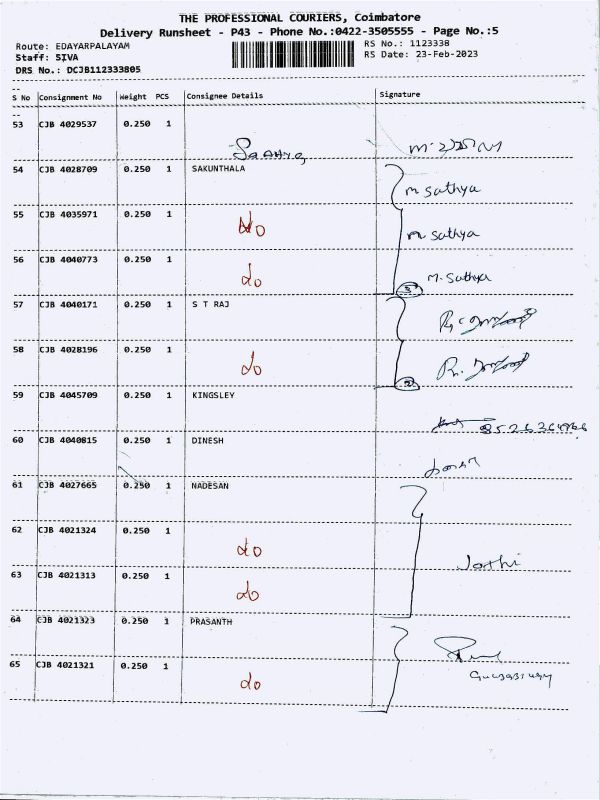 THE PROFESSIONAL COURIERS, Coimbatore
Delivery Runsheet - P43 - Phone No.:0422-3505555 - Page No.:5
Route: EDAYARPALAYAM RS No.: 1123338
Staff: SIVA RS Date: 23-Feb-2023
DRS No.: DCJB112333805
--
S No Consignment No Weight PCS Consignee Details Signature
--
53 CJB 4029537 0.250 1
54 CJB 4028709 0.250 1 SAKUNTHALA M Sathya
55 CJB 4035971 0.250 1 do M Sathya
56 CJB 4040773 0.250 1 do M. Sathya
3
57 CJB 4040171 0.250 1 S T RAJ
58 CJB 4028196 0.250 1 do
2
59 CJB 4045709 0.250 1 KINGSLEY
60 CJB 4040815 0.250 1 DINESH
61 CJB 4027665 0.250 1 NADESAN
62 CJB 4021324 0.250 1 do
Jothi
63 CJB 4021313 0.250 1 do
64 CJB 4021323 0.250 1 PRASANTH
65 CJB 4021321 0.250 1 do